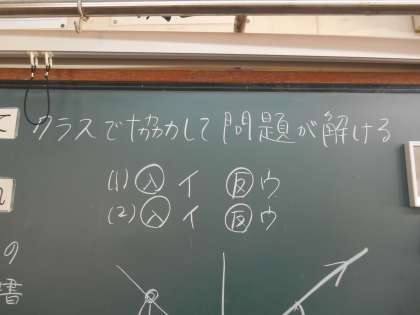 クラスで協力して問題が解ける
(1) 入 イ 反 ウ
(2) 入 イ 反 ウ
の
書